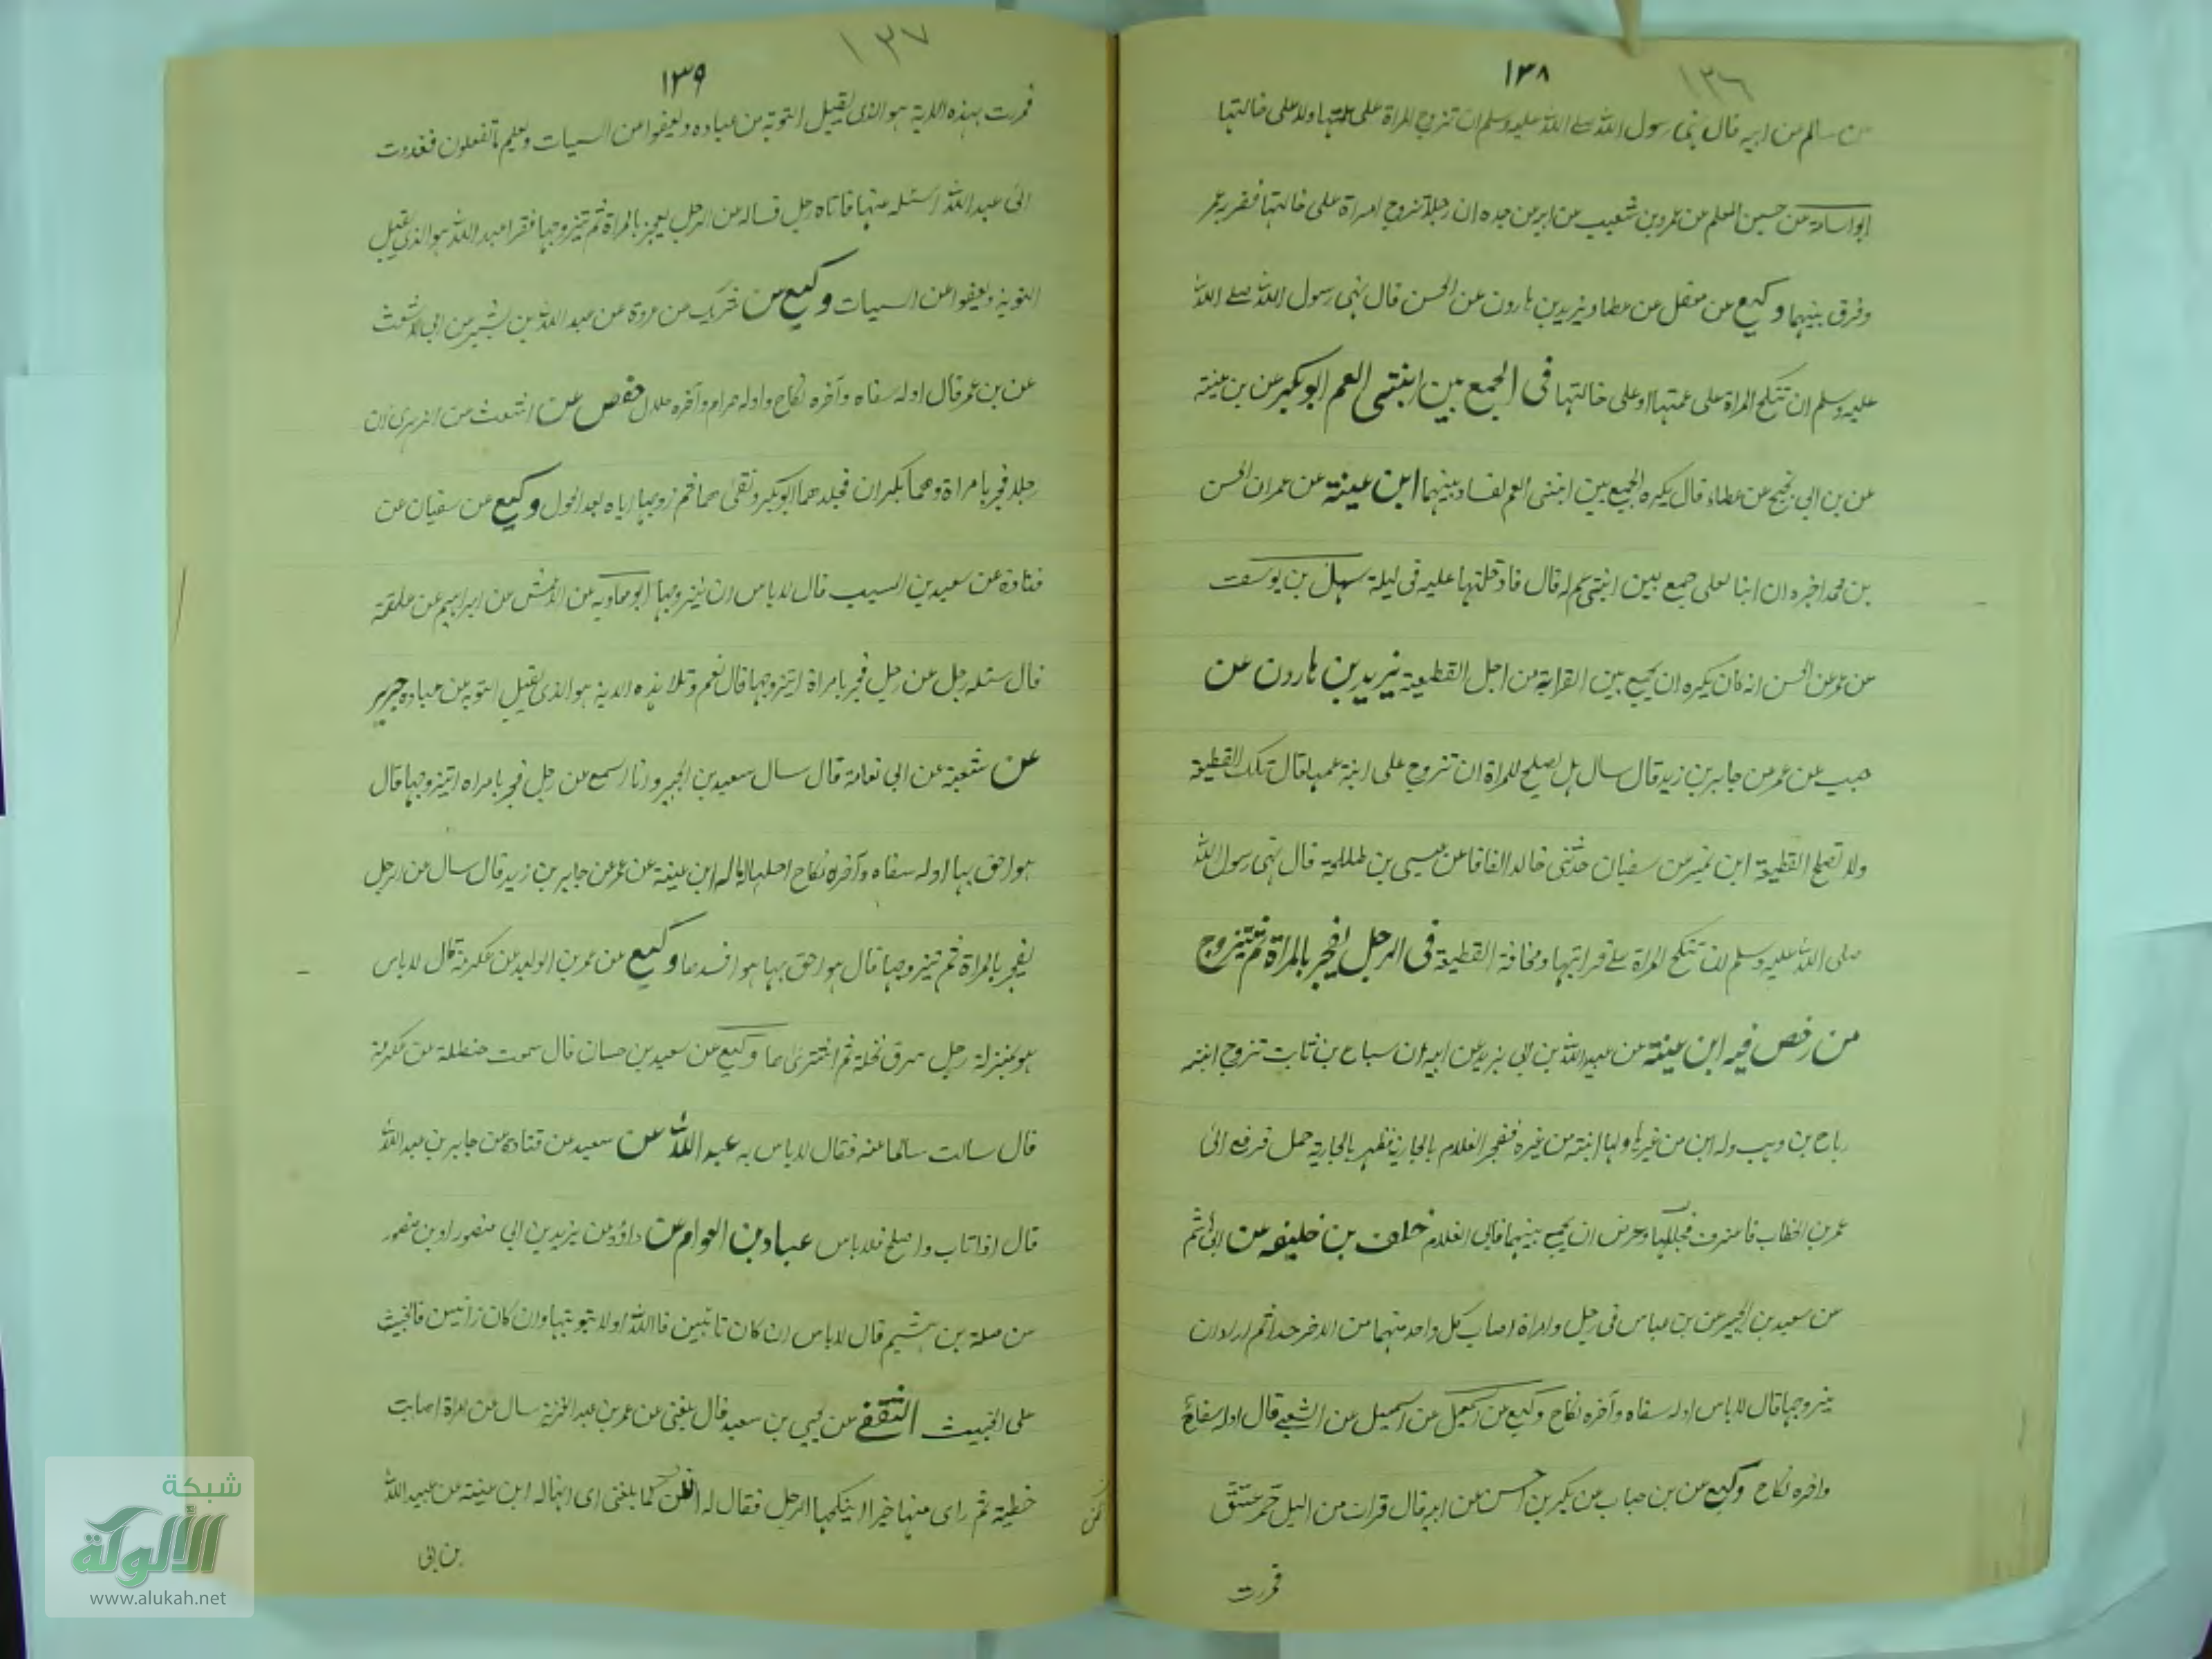 ١٣٨
١٣٦
عن سالم عن ابيه قال نهى رسول الله صلى الله عليه وسلم ان تزوج المراة على عمتها ولا على خالتها
ابو اسامة عن حسين المعلم عن عمرو بن شعيب عن ابيه عن جده ان رجلا تزوج امراة على خالتها فضربه عمر
وفرق بينهما وكيع عن معقل عن عطا ويزيد بن هارون عن الحسن قال نهى رسول الله صلى الله
عليه وسلم ان تنكح المراة على عمتها او على خالتها فى الجمع بين ابنتى العم ابو بكر عن بن عينة
عن بن ابي نجيح عن عطاء قال يكره الجمع بين ابنتى العم لفساد بينهما ابن عينة عن عمر ان الحسن
بن محمد اخبره ان ابنا لعلى جمع بين ابنتى عم له قال فادخلتها عليه فى ليلة سهل بن يوسف
عن عمر عن الحسن انه كان يكره ان يجمع بين القرابة من اجل القطيعة يزيد بن هارون عن
حبيب عن عمر عن جابر بن زيد قال سال هل يصلح للمراة ان تزوج على ابنة عمها قال تلك القطيعة
ولا تصلح القطيعة ابن نمير عن سفيان حدثنى خالد الفافا عن عيسى بن طلحة قال نهى رسول الله
صلى الله عليه وسلم ان تنكح المراة على قرابتها ومخافة القطيعة فى الرجل يفجر بالمراة ثم يتزوج
من رخص فيه ابن عينة عن عبيد الله بن ابي يزيد عن ابيه ان سباع بن ثابت تزوج ابنة
رباح بن وهب وله ابن من غيرها ولها ابنة من غيره ففجر الغلام بالجارية فظهر بالجارية حمل فرفع الى
عمر بن الخطاب فاعترف فجلدهما وحرض ان يجمع بينهما فابى الغلام خلف بن خليفه عن ابي هاشم
عن سعيد بن الجبير عن بن عباس فى رجل وامراة اصاب كل واحد منهما من الاخر حدا ثم اراد ان
يتزوجها قال لاباس اوله سفاه وآخره نكاح وكيع عن اسمعيل عن الشعبى قال اوله سفاح
واخره نكاح وكيع عن بن حباب عن بكير بن اخنس عن ابيه قال قرات من اليل حم عسق
فمررت
١٣٩
١٣٧
فمررت بهذه الاية هو الذى يقبل التوبة عن عباده ويعفوا عن السيات ويعلم ما تفعلون فغدوت
الى عبد الله اسئله عنها فاتاه رجل فساله عن الرجل يفجر بالمراة ثم يتزوجها فقرا عبد الله هو الذى يقبل
التوبة ويعفوا عن السيات وكيع عن شريك عن عروة عن عبد الله بن بشير عن ابي الاشعث
عن بن عمر قال اوله سفاه وآخره نكاح واوله حرام وآخره حلال حفص عن اشعث عن الزهرى ان
رجلا فجر بامراة وهما بكران فجلدهما ابو بكر ونفى هما ثم زوجها اياه بعد الحول وكيع عن سفيان عن
قتادة عن سعيد بن المسيب قال لاباس ان يتزوجها ابو معاويه عن الاعمش عن ابراهيم عن علقمة
قال سئله رجل عن رجل فجر بامراة ايتزوجها قال نعم وتلا هذه الاية هو الذى يقبل التوبه عن عباده جرير
عن شعبة عن ابي نعامة قال سال سعيد بن الجبير وانا اسمع عن رجل فجر بامراه ايتزوجها قال
هو احق بها اوله سفاه وآخره نكاح احلها له ماله ابن عينة عن عمر عن جابر بن زيد قال سال عن الرجل
يفجر بالمراة ثم يتزوجها قال هو احق بها هو افسدها وكيع عن عمر بن الوليد عن عكرمة قال لاباس
هو بمنزلة رجل سرق نخلة ثم اشترى ها وكيع عن سعيد بن حسان قال سمعت حنظلة عن عكرمة
قال سالت سالما عنه فقال لاباس به عبد الله عن سعيد عن قتادة عن جابر بن عبد الله
قال اذا تاب واصلح فلاباس عباد بن العوام عن داؤد عن يزيد بن ابي منصور او بن منصور
عن صلة بن هشيم قال لاباس ان كان تائبين فا الله اولا بتوبتها وان كان زانيين فالخبيث
على الخبيث الثقفى عن يحيى بن سعيد قال بلغنى عن عمر بن عبد العزيز سال عن امراة اصابت
خطية ثم راى منها خيرا اينكحها الرجل فقال له اظن كما بلغنى اى انها له ابن عينة عن عبيد الله
بن ابى
شبكة
الألوكة
www.alukah.net